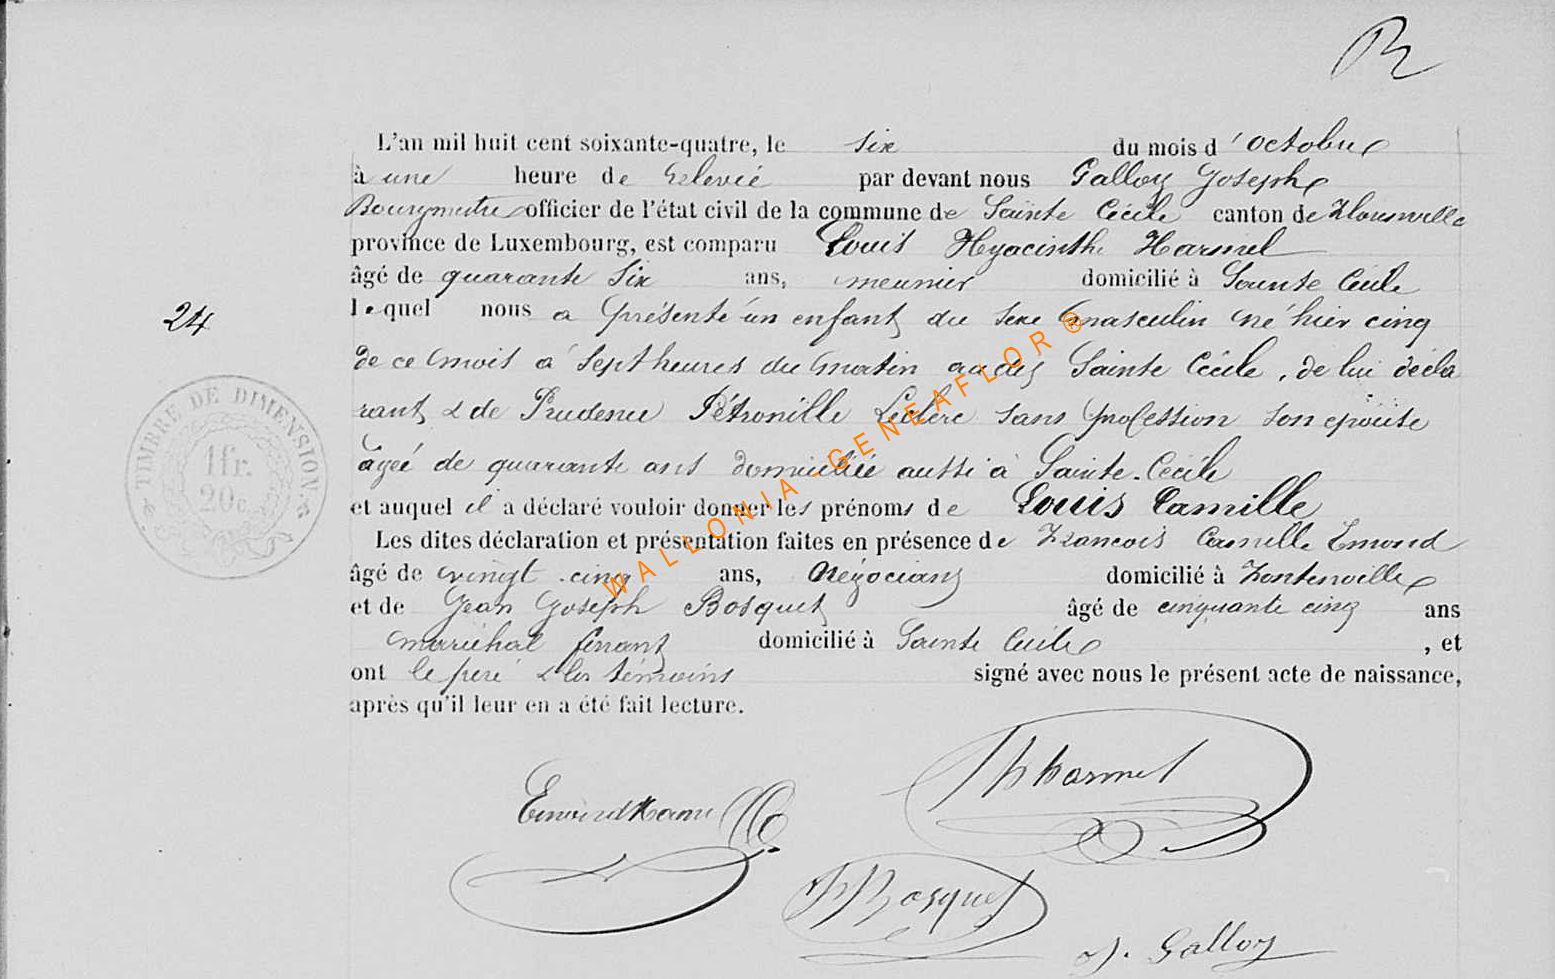 R
L'an mil huit cent soixante-quatre, le six du mois d'octobre
à une heure de relevée par devant nous Galloy Joseph
Bourgmestre officier de l'état civil de la commune de Sainte Cécile canton de Florenville
province de Luxembourg, est comparu Louis Hyacinthe Harmel
âgé de quarante six ans, meunier domicilié à Sainte Cécile
lequel nous a présenté un enfant du sexe masculin né hier cinq
24
de ce mois à sept heures du matin au dit Sainte Cécile, de lui décla
rant & de Prudence Pétronille Leclerc sans profession son épouse
âgée de quarante ans domiciliée aussi à Sainte-Cécile
et auquel il a déclaré vouloir donner les prénoms de Louis Camille
Les dites déclaration et présentation faites en présence de François Camille Emond
âgé de vingt-cinq ans, Négociant domicilié à Fontenoille
et de Jean Joseph Bosquet âgé de cinquante cinq ans
maréchal ferrant domicilié à Sainte Cécile, et
ont le père & les témoins signé avec nous le présent acte de naissance,
après qu'il leur en a été fait lecture.
TIMBRE DE DIMENSION.
1fr.
20c.
WALLONIA - GENEAFLOR ®
Harmel
Emond
Bosquet
J. Galloy